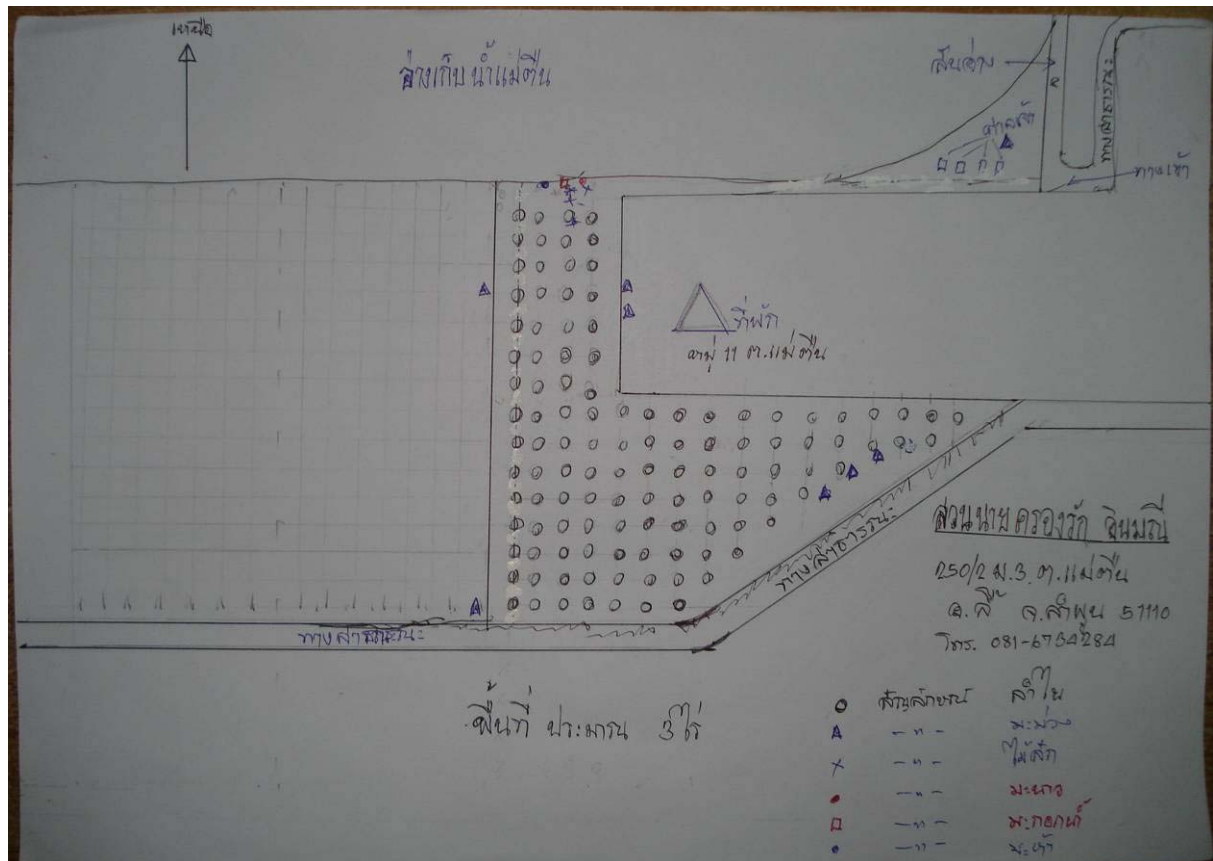 เหนือ
อ่างเก็บน้ำแม่ตืน
สันอ่าง
ทางสาธารณะ
ศาลเจ้า
ทางเข้า
ที่พัก
หมู่ 11 ต.แม่ตืน
ทางสาธารณะ
ทางสาธารณะ
สวนนายครองรัก อินมณี
250/2 ม.3 ต.แม่ตืน
อ.ลี้ จ.ลำพูน 51110
โทร. 081-6764284
พื้นที่ ประมาณ 3 ไร่
สัญลักษณ์ ลำไย
-"- มะม่วง
-"- ไม้สัก
-"- มะนาว
-"- มะกอกน้ำ
-"-